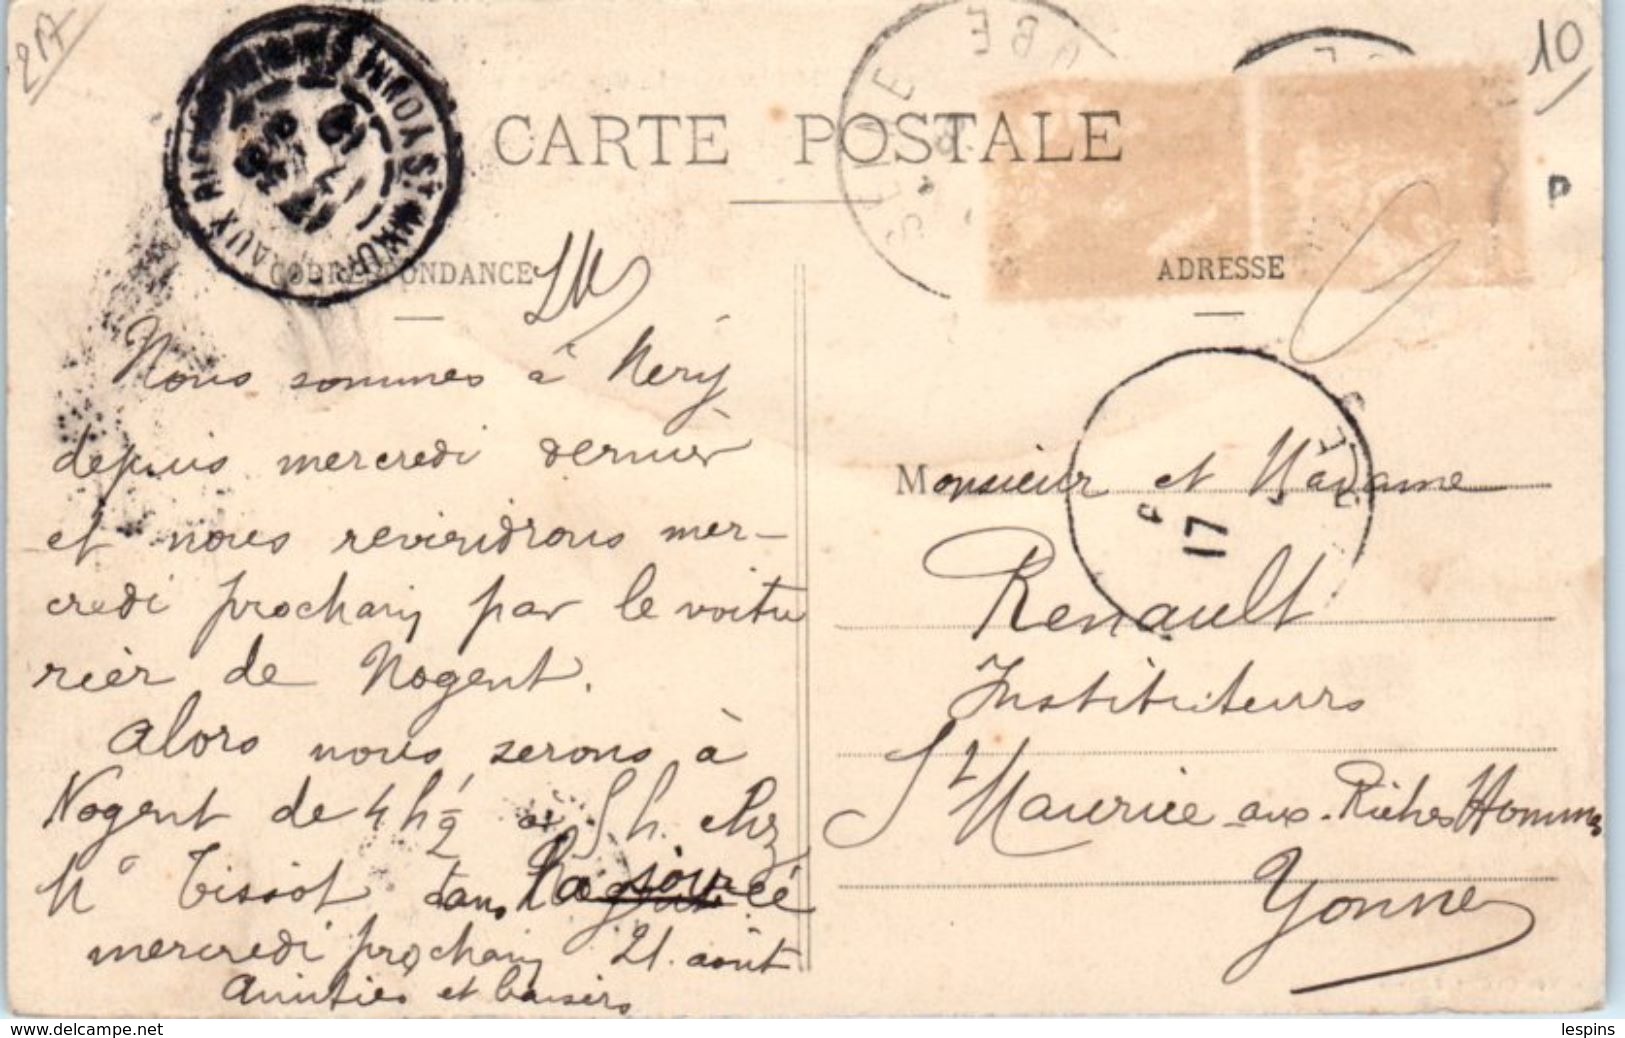 217
10
CARTE POSTALE
CORRESPONDANCE
ADRESSE
P
Nous sommes à Méry
depuis mercredi dernier
et nous reviendrons mer-
credi prochain par le voitu
rier de Nogent.
Alors nous serons à
Nogent de 4 h ½ à 5 h. chez
Mr Tissot dans la journée
mercredi prochain 21 août
Amitiés et baisers
Monsieur et Madame
Renault
Instituteurs
St Maurice aux Riches Hommes
Yonne
17
delcampe.net
lespins